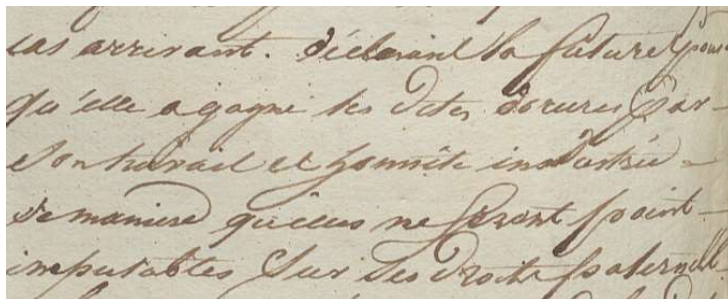 cas arrivant. Déclarant la future épouse
qu'elle a gagné les dites dorures par
son travail et honnête industrie
de maniere qu'elles ne seront point
imputables sur ses droits paternels